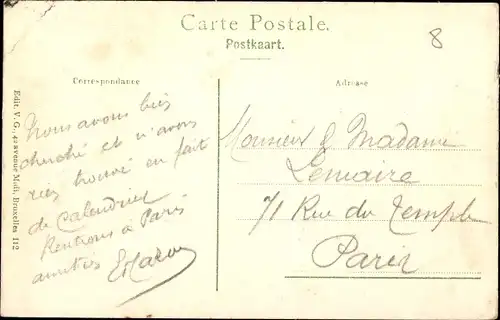 Carte Postale.
Postkaart.
8
Correspondance
Adresse
Edit. V. G., 42 avenue Moli, Bruxelles 112
Nous avons bien
cherché et n'avons
rien trouvé en fait
de Calendrier
Rentrons à Paris
amitiés
Monsieur & Madame
Lemaire
71 Rue du Temple
Paris